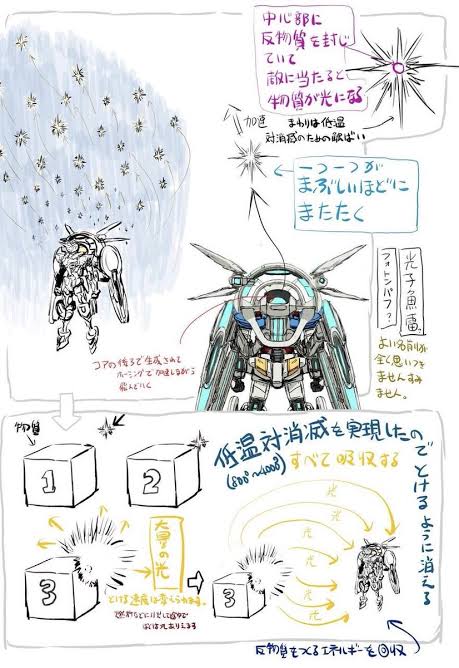 中心部に
反物質を封じ
ていて
敵に当たると
物質が光になる
加速
まわりは低温
対消滅のための
一つ一つが
まぶしいほどに
またたく
光子魚雷
フォトン
よい名前が
全く思いつき
ませんすみ
ません。
コアの後ろで生成されて
ホーミングで加速しながら
飛んでいく
物質
1
2
3
大量の光
とける速度は変えられる。
3
低温対消滅を実現したので とけるように消える
(800°~1000°)
すべて吸収する
光
光
光
光
光
光
反物質をつくるエネルギーを回収